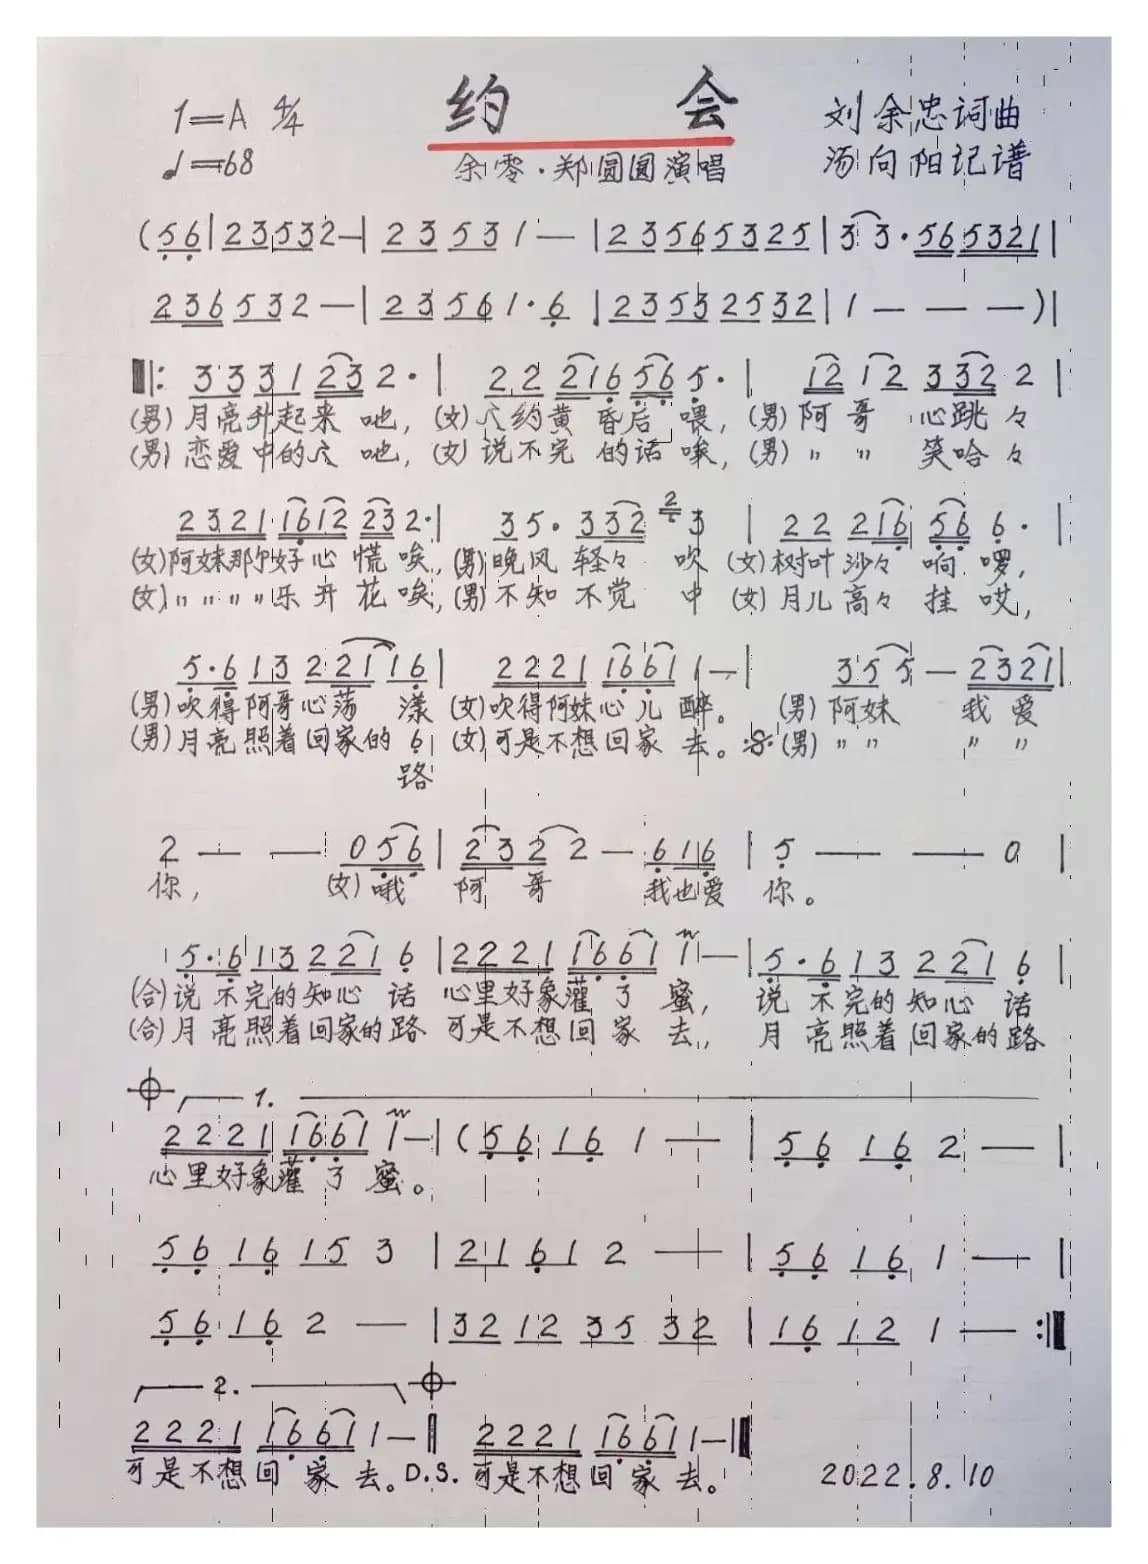 1=A 4/4
♩=68
约 会
余零·郑圆圆演唱
刘余忠词曲
汤向阳记谱
(56|23532-|23531-|23565325|33·565321|
236532-|23561·6|23532532|1---)|
‖:3331232·|22216565·|12123322|
(男)月亮升起来吔,(女)人约黄昏后喂,(男)阿哥心跳々
(男)恋爱中的人吔,(女)说不完的话嗨,(男)〃〃笑哈々
23211612232·|35·33223|22216566·|
(女)阿妹那尔好心慌唉,(男)晚风轻々吹(女)树叶沙々响啰,
(女)〃〃〃〃乐开花唉,(男)不知不觉中(女)月儿高々挂哎,
5·61322116|222116611-|355-2321|
(男)吹得阿哥心荡漾(女)吹得阿妹心儿醉。(男)阿妹我爱
(男)月亮照着回家的6(女)可是不想回家去。𝄋(男)〃〃〃〃
路
2--056|2322-616|5--0|
你,(女)哦阿哥我也爱你。
5·6132216|222116611-|5·6132216|
(合)说不完的知心话心里好象灌了蜜,说不完的知心话
(合)月亮照着回家的路可是不想回家去,,月亮照着回家的路
𝄌1.
222116611-|(56161--|56162--|
心里好象灌了蜜。
5616153|21612--|56161--|
56162--|32123532|16121-:‖
2.𝄌
222116611-‖222116611-‖
可是不想回家去。D.S.可是不想回家去。
2022.8.10